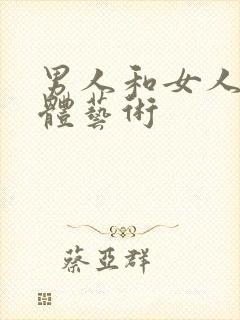 男人和女人
體藝術
蔡亞群